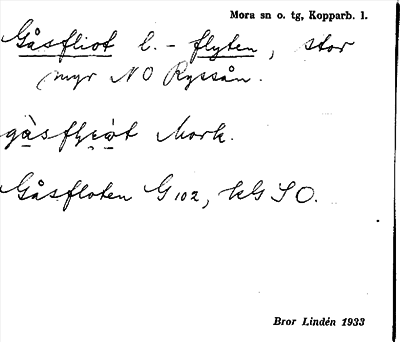 Mora sn o. tg, Kopparb. l.
Gåsfliot l. - flyten, stor
myr NO Ryssån.
gàsfl̥i̯òt Mork.
Gåsfloten G 102, kG SO.
Bror Lindén 1933